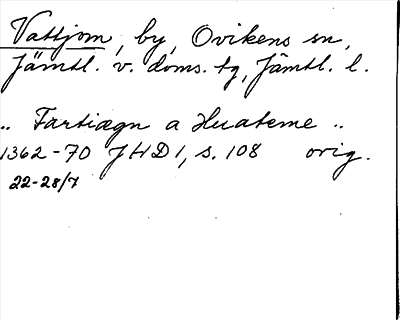 Vattjom, by, Ovikens sn,
Jämtl. v. doms. tg, Jämtl. l.
„ Fartiægn a Huateme „
1362-70 JHD 1, s. 108 orig.
22-28/7